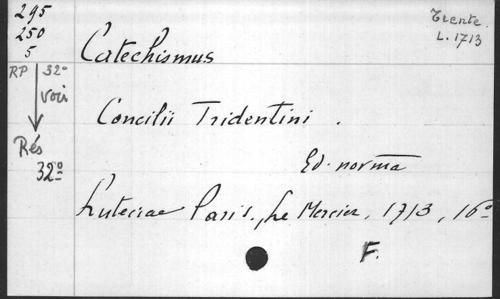 295
250
5
Trente.
L. 1713
Catechismus
RP 32º
voir
Concilii Tridentini .
Rés
32º
Ed. norma
Luteciae Paris., Le Mercier, 1713, 16º
F.